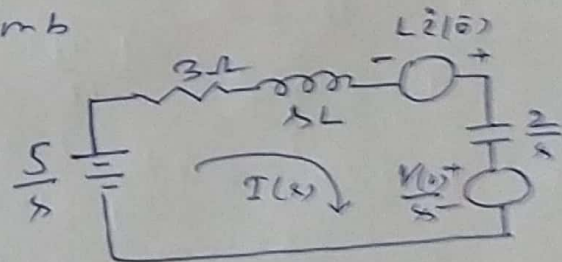 mb
Li(0̄)
3Ω
- +
sL
2/s
5/s
I(s)
V(0)/s + -